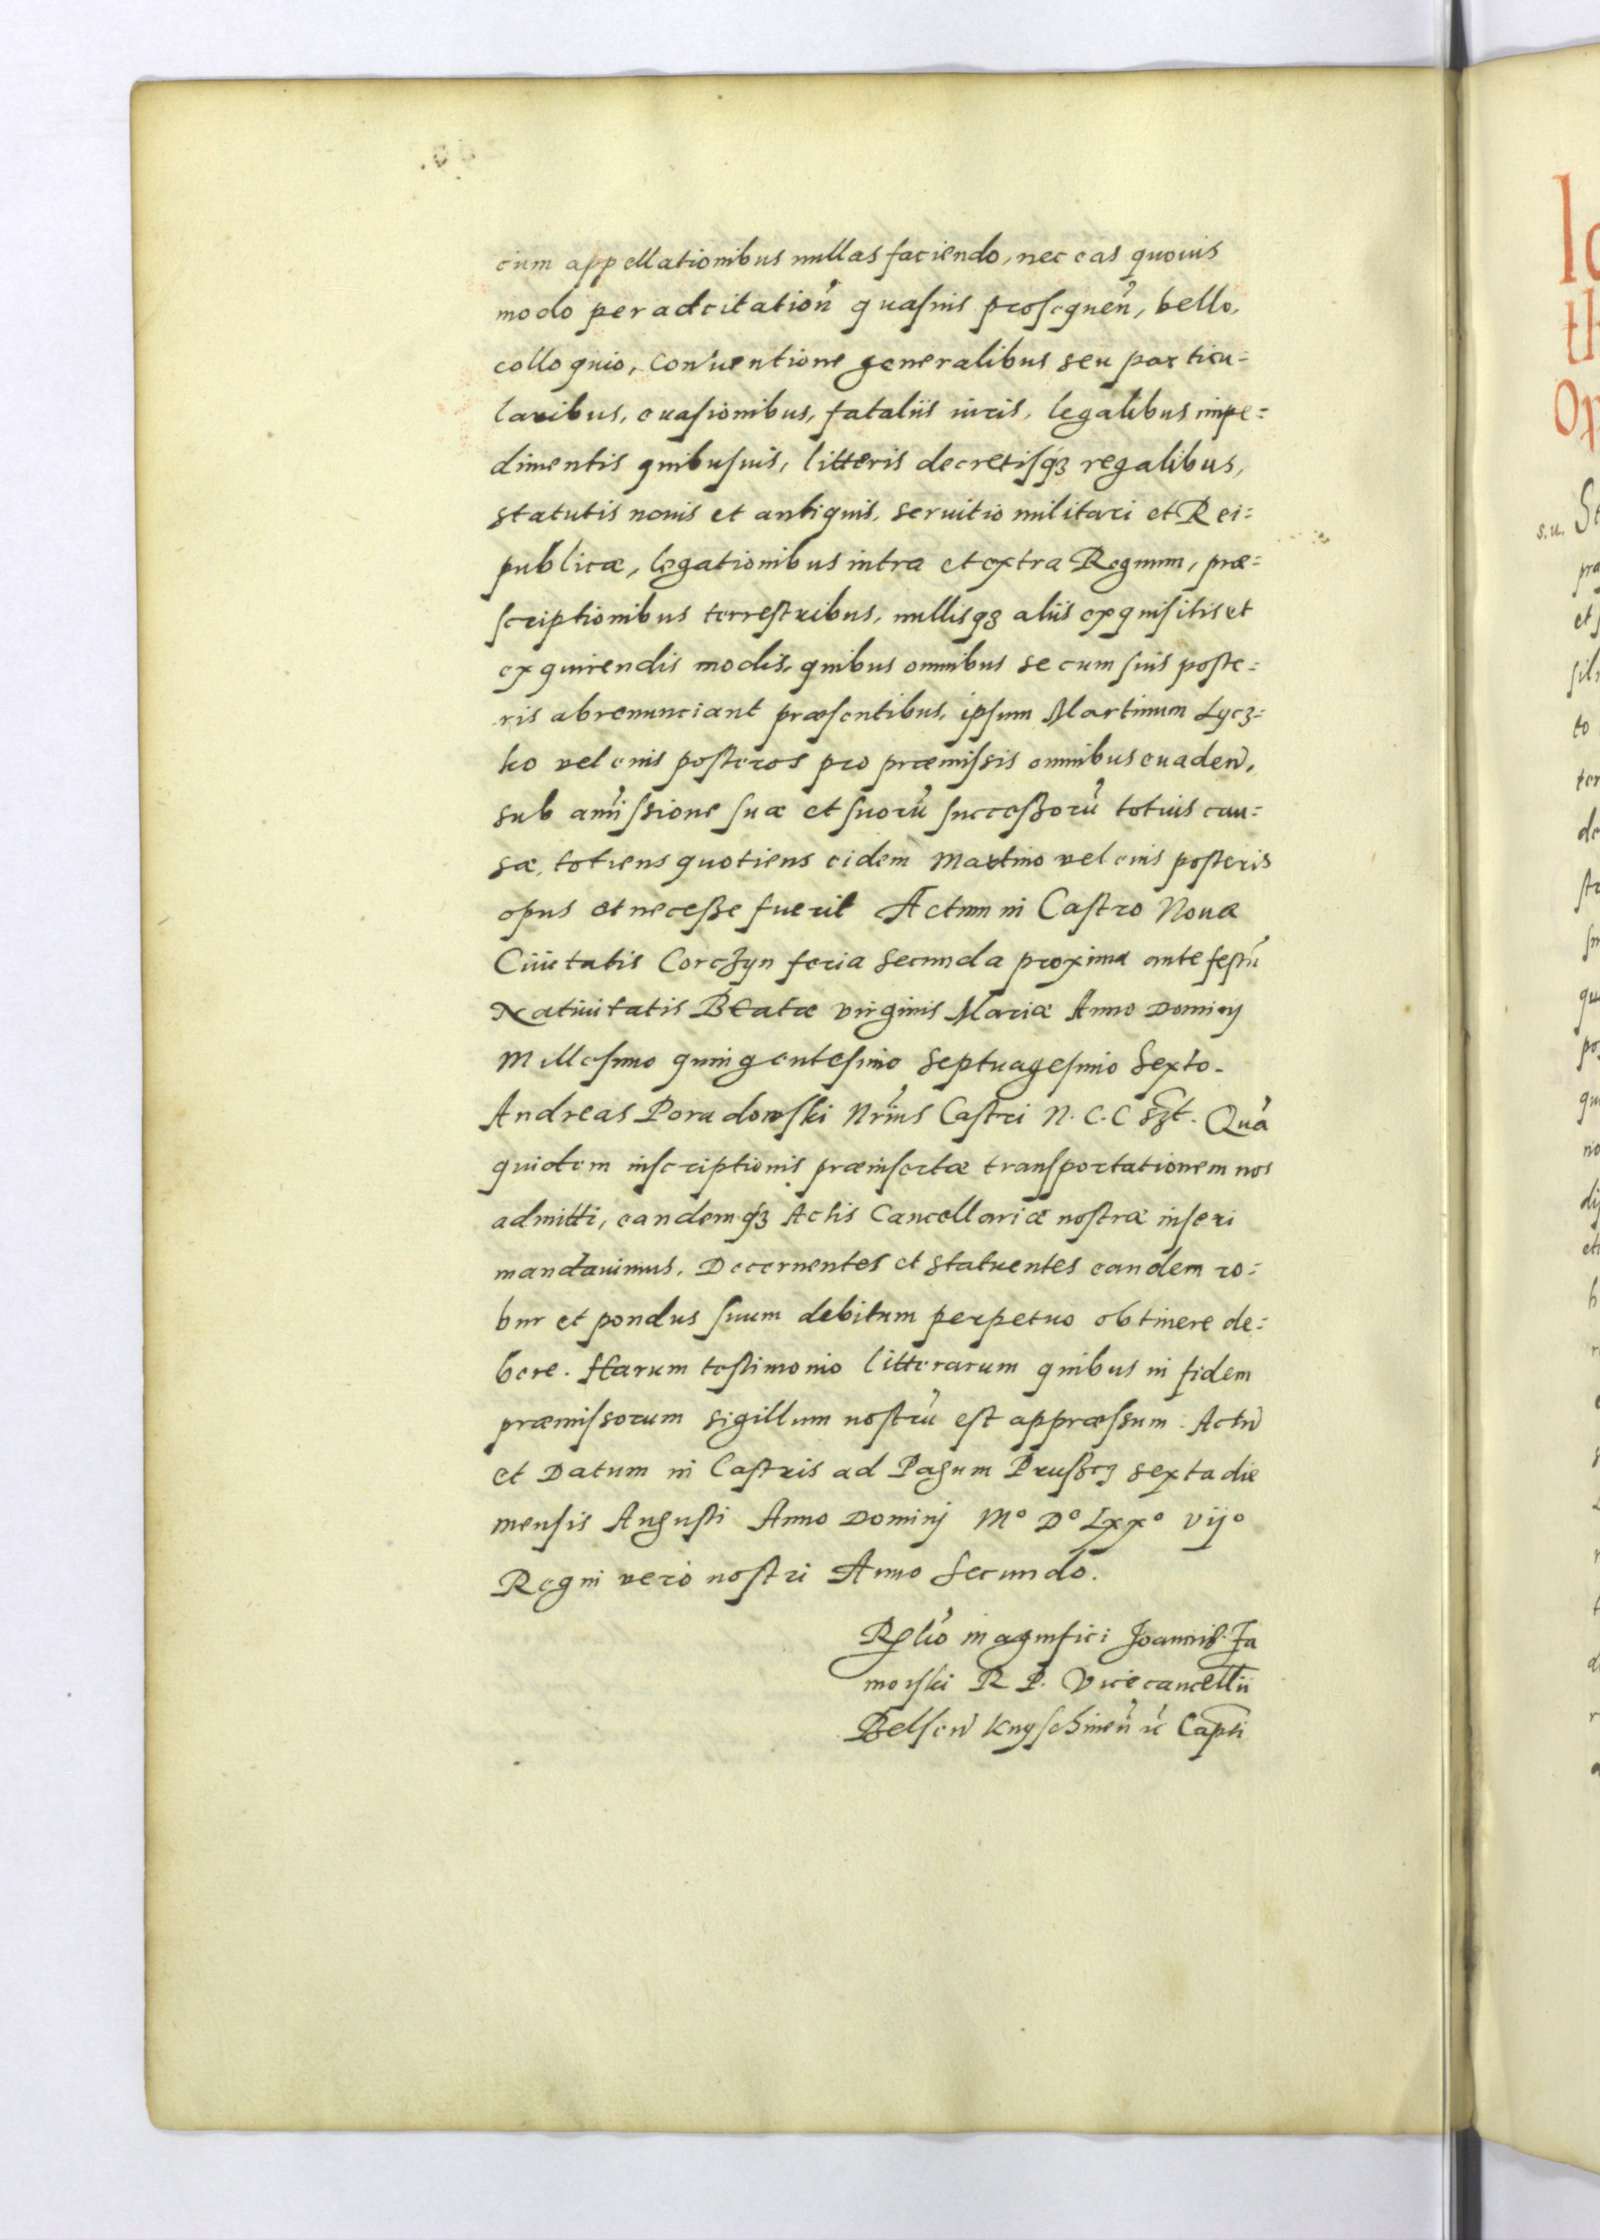 cium appellationibus nullas faciendo, nec eas quouis
modo per adcitation̄ quasuis prosequen̄, bello,
colloquio, conuentione generalibus seu particu=
laribus, euasionibus, fataliis iuris, legalibus impe=
dimentis quibusuis, litteris decretisqꝫ regalibus,
statutis nouis et antiquis, seruitio militari et Rei=
publicæ, legationibus intra et extra Regnum, præ=
scriptionibus terrestribus, nullisqꝫ aliis exquisitis et
exquirendis modis, quibus omnibus se cum suis poste=
ris abrenunciant præsentibus, ipsum Martinum Lycz=
ko vel eius posteros pro præmissis omnibus euaden̄,
sub amissione suæ et suorū successorū totius cau=
sæ, totiens quotiens eidem Martino vel eius posteris
opus et necesse fuerit Actum in Castro Nouæ
Ciuitatis Corczyn feria secunda proxima ante festū
Natiuitatis Beatæ virginis Mariæ Anno Dominj
Millesimo quingentesimo septuagesimo sexto.
Andreas Poradowski Nrīus Castri N. C. C szt. Quā
quidem inscriptionis præinsertæ transportationem nos
admitti, eandemqꝫ Actis Cancellariæ nostræ inseri
mandauimus. Decernentes et statuentes eandem ro=
bur et pondus suum debitum perpetuo obtinere de=
bere. Harum testimonio litterarum quibus in fidem
præmissorum sigillum nostrū est appræssum. Actū
et Datum in Castris ad Pagum Prusscz sexta die
mensis Augusti Anno Dominj Mº Dº Lxxº vijº
Regni vero nostri Anno secundo.
Relīo magnifici Joannis Za
moiski R P. Vicecancellii
Belsen̄ Knyschinen̄ ꝛc̄ Capti
s.u.